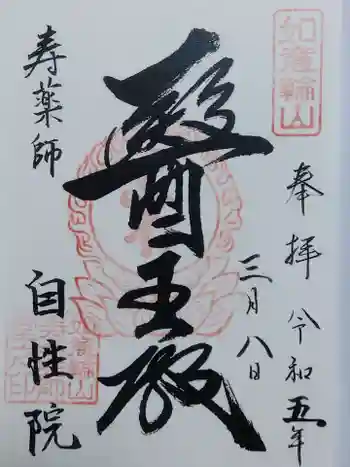 如意輪山
奉拝 令和五年
三月八日
醫王殿
寿薬師
自性院